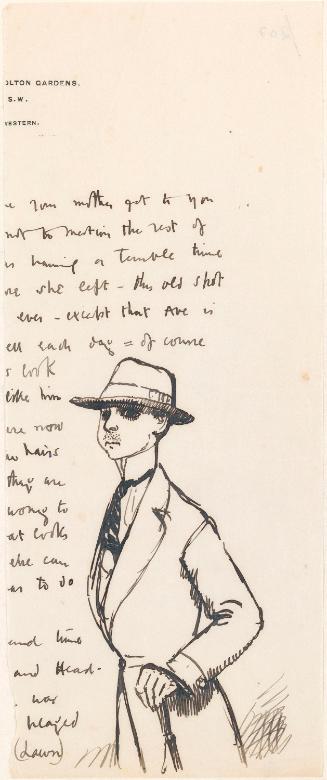 OLTON GARDENS.
S.W.
WESTERN.
your mother got to you
not to mention the rest of
having a terrible time
she left - this old spot
ever - except that Ave is
each day = of course
look
like him
are now
hairs
they are
wrong to
at looks
else can
as to do
and time
and Head-
war
played
(Lawn)